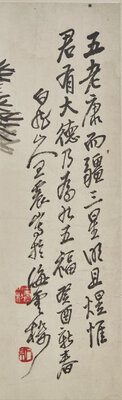 五老康而彊三星明且煌惟
君有大德乃為九五福癸酉新春
白龍山人王震寫於海雲樓